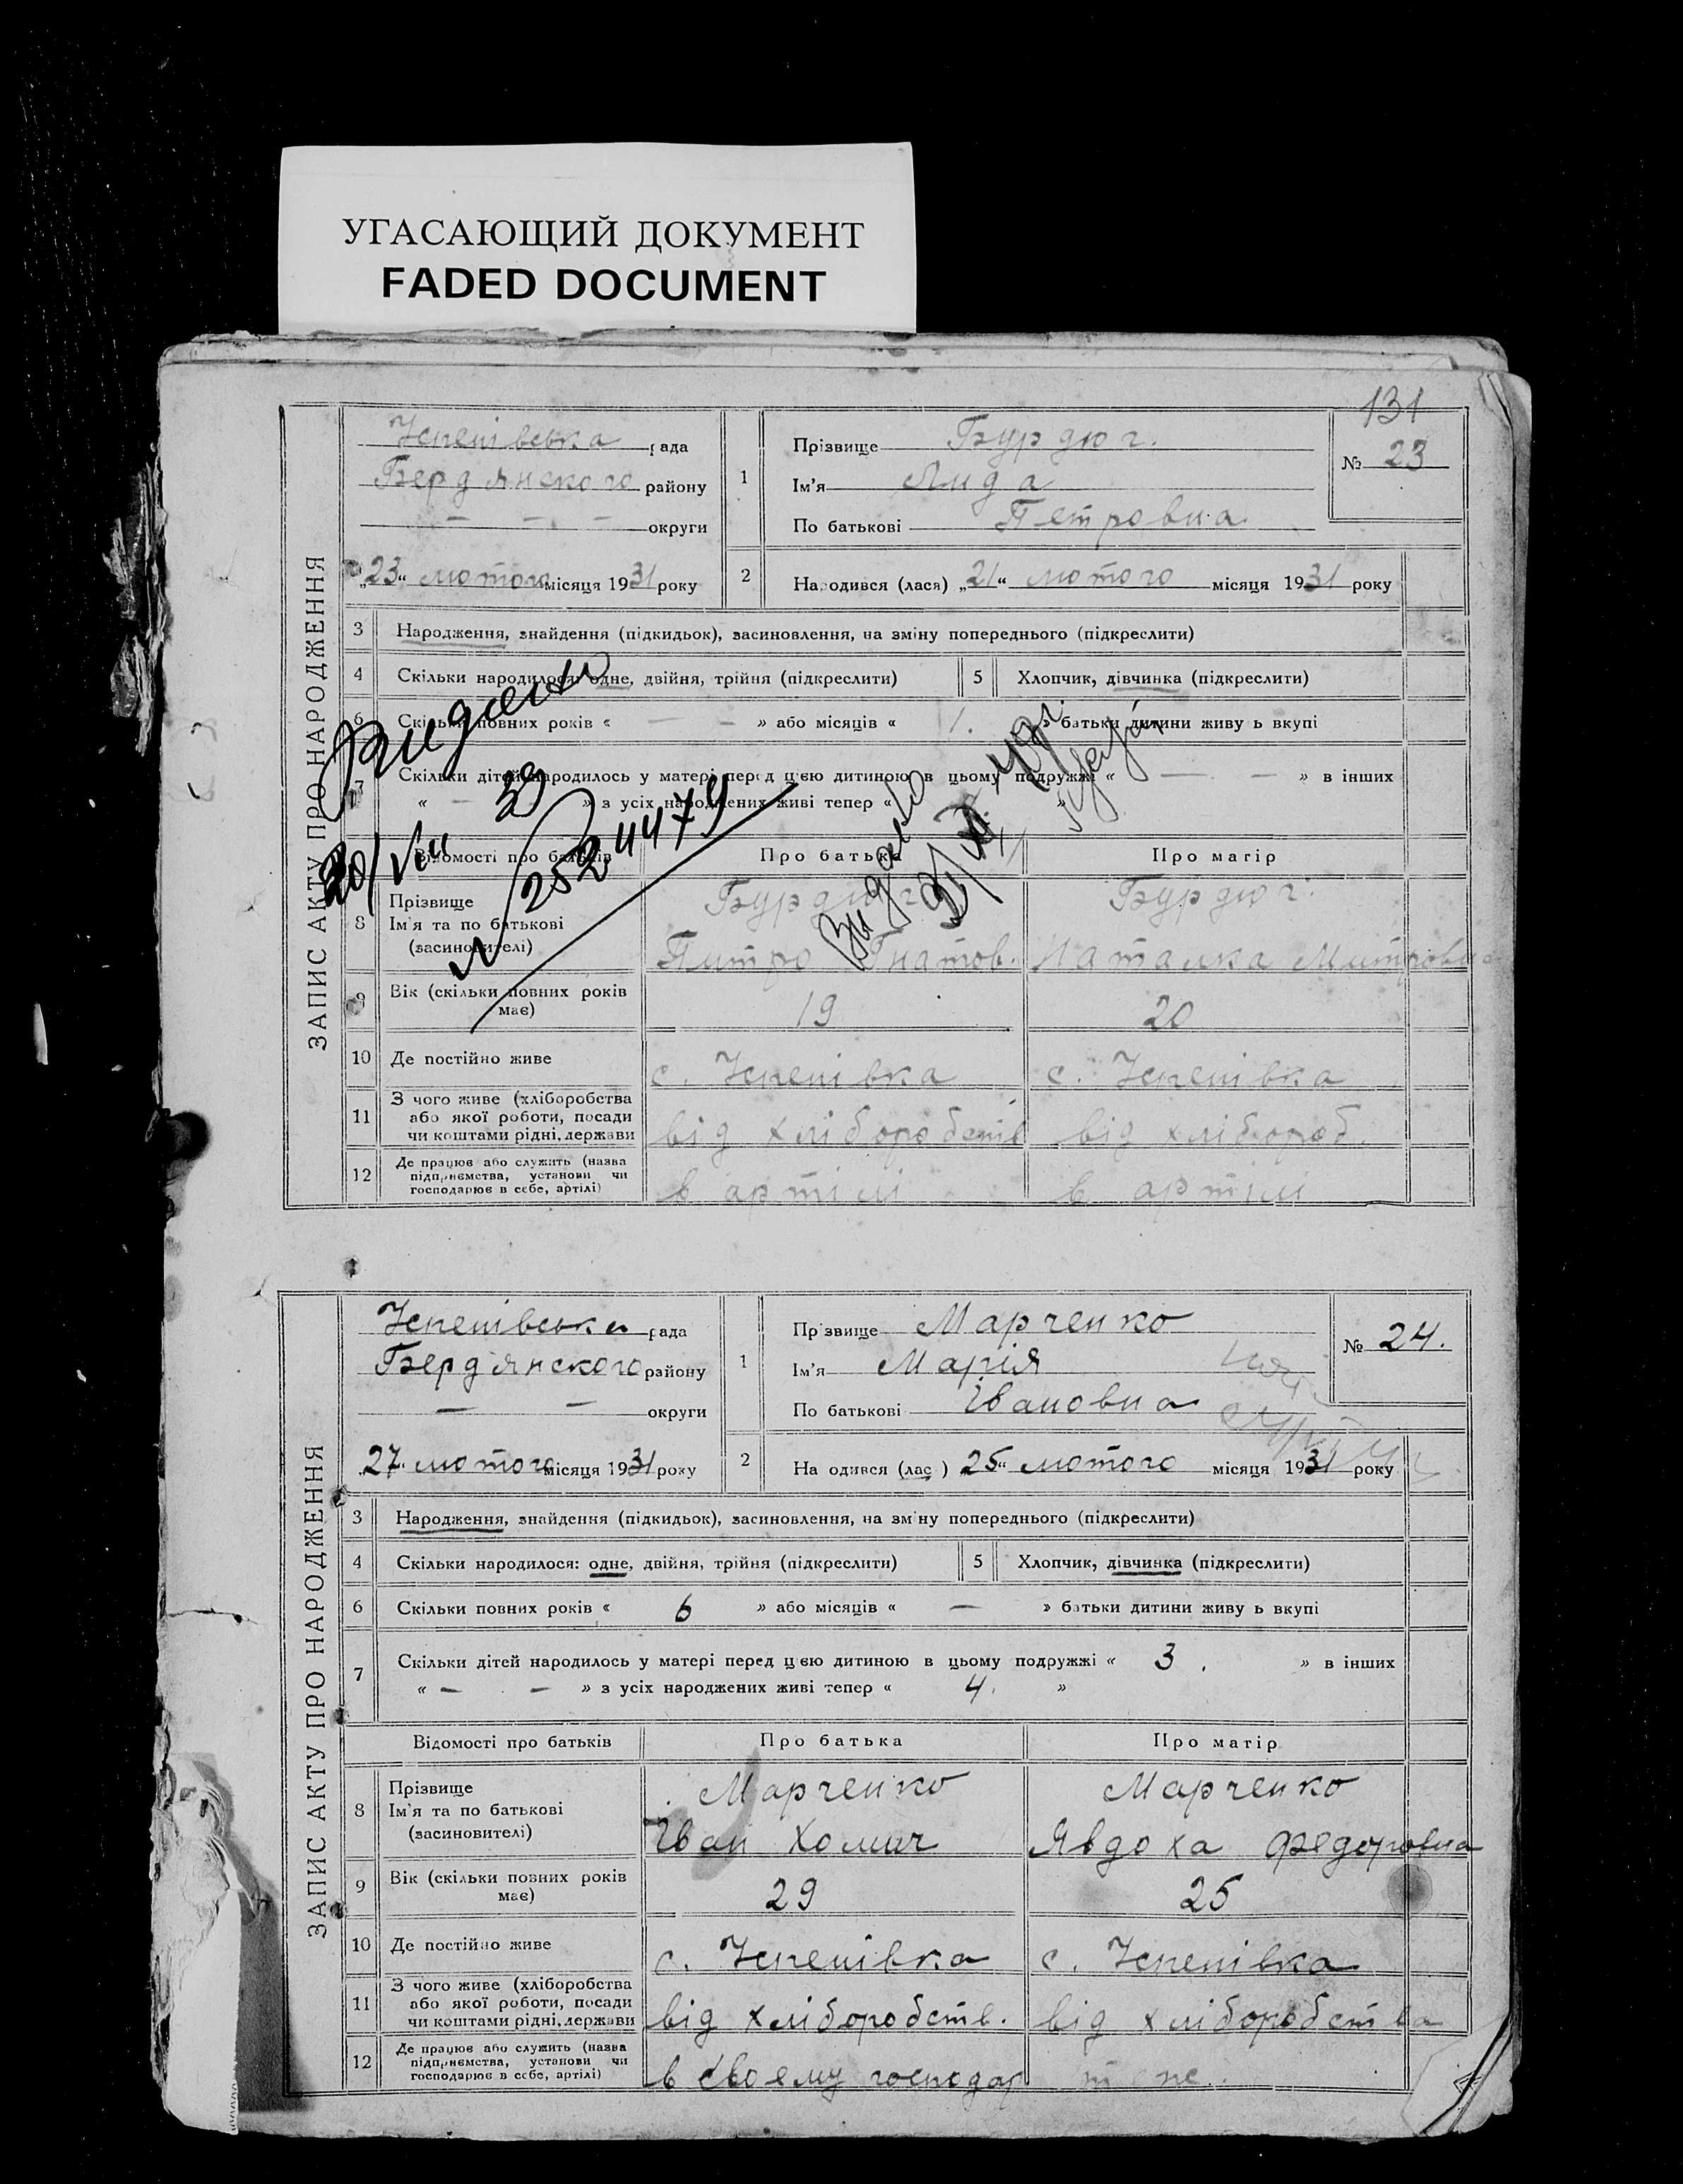 УГАСАЮЩИЙ ДОКУМЕНТ
FADED DOCUMENT
131
ЗАПИС АКТУ ПРО НАРОДЖЕННЯ
Успенівська рада
Бердянского району
— — — округи
„23“ лютого місяця 1931 року
1 Прізвище Бурдюг.
Ім'я Лида
По батькові Петровна
№ 23
2 Народився (лася) „21“ лютого місяця 1931 року
3 Народження, знайдення (підкидьок), засиновлення, на зміну попереднього (підкреслити)
4 Скільки народилося: одне, двійня, трійня (підкреслити)
5 Хлопчик, дівчинка (підкреслити)
6 Скільки повних років « — — » або місяців « 1. » батьки дитини живуть вкупі
7 Скільки дітей народилось у матері перед цією дитиною в цьому подружжі « — — » в інших
« — » з усіх народжених живі тепер « »
Видано
20/VIII 39
N 2524479
Видано
Відомості про батьків Про батька Про матір
8 Прізвище
Ім'я та по батькові
(засиновителі)
Бурдюг
Питро Гнатов.
Бурдюг.
Наталка Митровна
9 Вік (скільки повних років має) 19 20
10 Де постійно живе с. Успенівка с. Успенівка
11 З чого живе (хліборобства
або якої роботи, посади
чи коштами рідні, держави
від хліборобств від хлібороб.
12 Де працює або служить (назва
підприємства, установи чи
господарює в себе, артілі)
в артілі в артілі
ЗАПИС АКТУ ПРО НАРОДЖЕННЯ
Успенівська рада
Бердянского району
— — округи
„27“ лютого місяця 1931 року
1 Прізвище Марченко
Ім'я Марія
По батькові Івановна
№ 24.
2 Народився (лас ) 25“ лютого місяця 1931 року
3 Народження, знайдення (підкидьок), засиновлення, на зміну попереднього (підкреслити)
4 Скільки народилося: одне, двійня, трійня (підкреслити)
5 Хлопчик, дівчинка (підкреслити)
6 Скільки повних років « 6 » або місяців « — » батьки дитини живуть вкупі
7 Скільки дітей народилось у матері перед цією дитиною в цьому подружжі « 3. » в інших
« — — » з усіх народжених живі тепер « 4. »
Відомості про батьків Про батька Про матір
8 Прізвище
Ім'я та по батькові
(засиновителі)
Марченко
Іван Хомич
Марченко
Явдоха Федоровна
9 Вік (скільки повних років має) 29 25
10 Де постійно живе с. Успенівка с. Успенівка
11 З чого живе (хліборобства
або якої роботи, посади
чи коштами рідні, держави
від хліборобств. від хліборобства
12 Де працює або служить (назва
підприємства, установи чи
господарює в себе, артілі)
в своему господар теж.